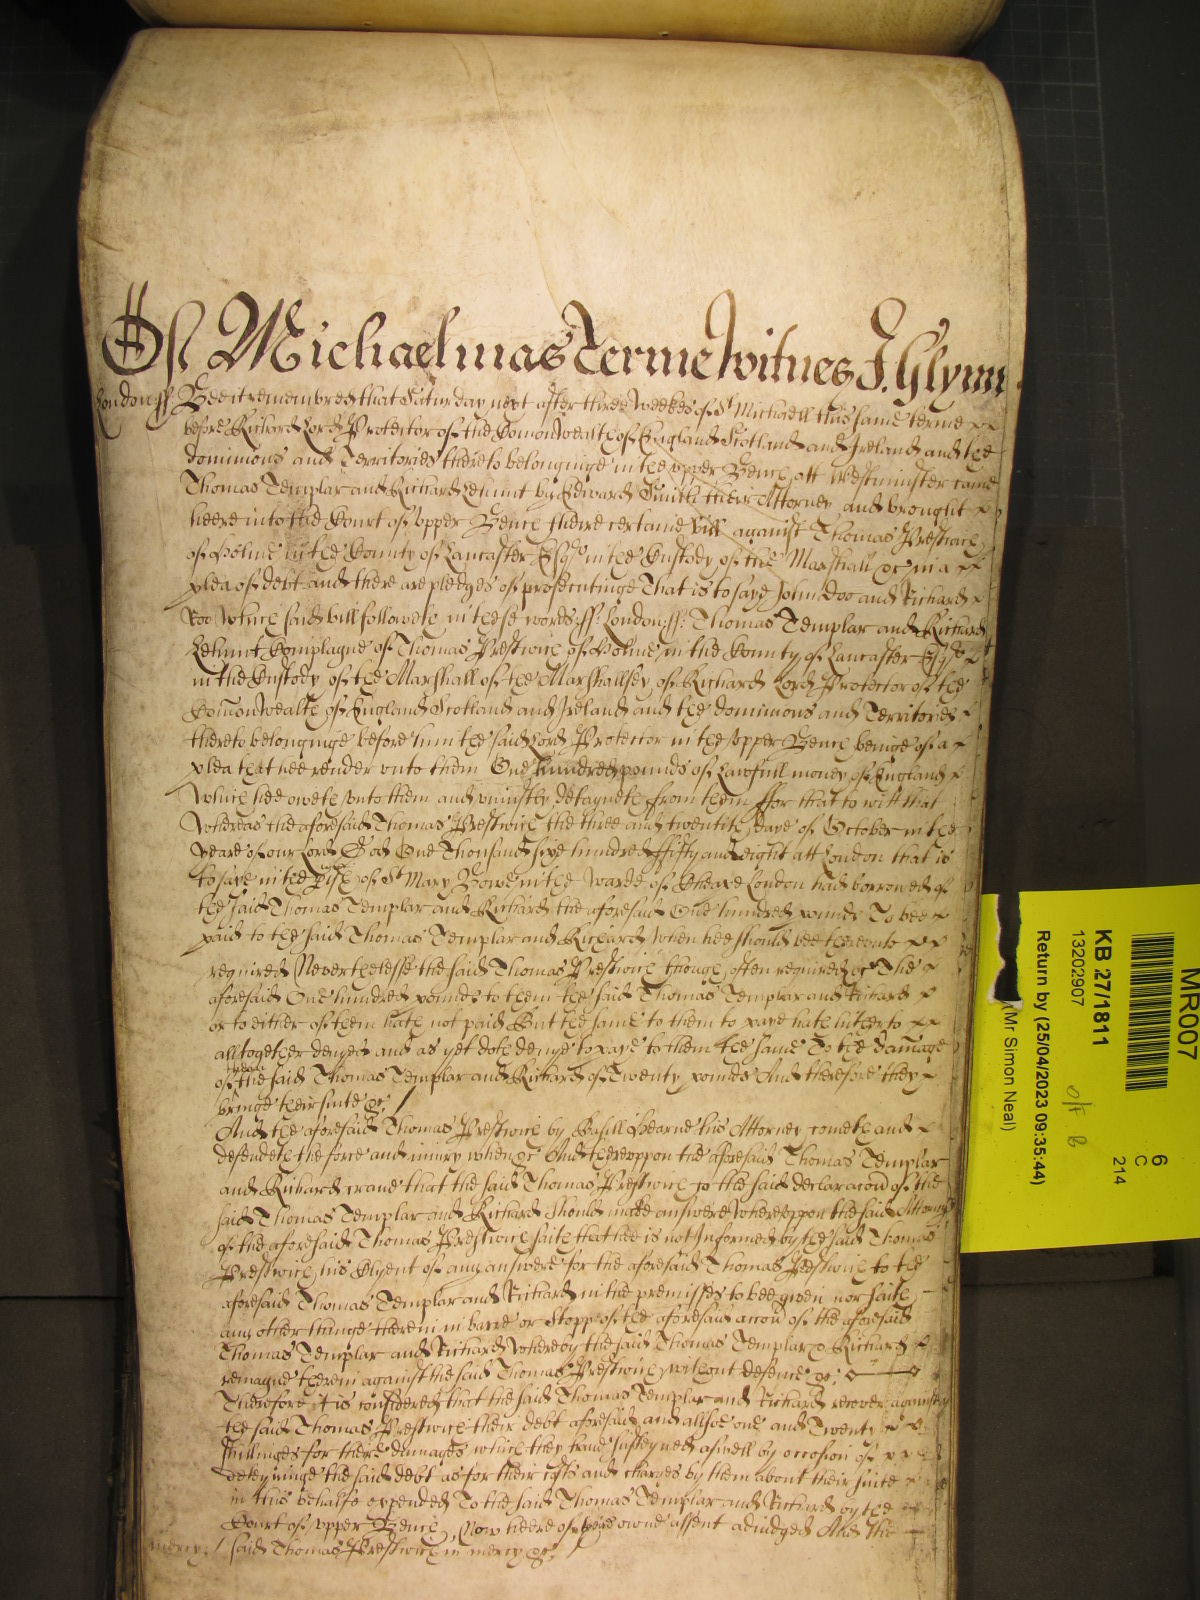 Of Michaelmas Terme Witnes J. Glynn
London ss Bee it remembred that Saturday next after three Weekes of St Michaell this same terme
before Richard Lord Protector of the Comon Wealth of England Scotland and Ireland and the
dominions and Territories thereto belonginge in the upper Bench att Westminster came
Thomas Templar and Richard Lehunt by Edward Smith their Attorney and brought
heere into the Court of upper Bench there certaine bill against Thomas Prestwich
of Holme in the County of Lancaster Esqr in the Custody of the Marshall &c in a
plea of debt and there are pledges of prosecutinge That is to saye John Doo and Richard
Roo Which said bill followeth in these words ss London ss Thomas Templar and Richard
Lehunt Complayne of Thomas Prestwich of Holme in the County of Lancaster Esqr
in the Custody of the Marshall of the Marshallsey of Richard Lord Protector of the
Comon Wealth of England Scotland and Ireland and the dominions and Territories
thereto belonginge before him the said Lord Protector in the upper Bench beinge of a
plea that hee render unto them One hundred pounds of Lawfull money of England
Which hee oweth unto them and uniustly detayneth from them ffor that to witt that
Whereas the aforesaid Thomas Prestwich the three and twentith daye of October in the
yeare of our Lord God One Thousand sixe hundred ffifty and eight att London that is
to saye in the pish of St Mary Bowe in the Warde of Cheape London had borrowed of
the said Thomas Templar and Richard the aforesaid One hundred pounds To bee
paid to the said Thomas Templar and Richard When hee should bee thereunto
required Neverthelesse the said Thomas Prestwich though often required &c The
aforesaid One hundred pounds to them the said Thomas Templar and Richard
or to either of them hath not paid But the same to them to paye hath hitherto
alltogether denyed and as yet doth denye to paye to them the same To the damage
of the said Thomas Templar and Richard of Twenty pounds And therefore they
bringe their suite &c
And the aforesaid Thomas Prestwich by Basill Hearne his Attorney cometh and
defendeth the force and iniury when &c And thereuppon the aforesaid Thomas Templar
and Richard crave that the said Thomas Prestwich to the said declaracon of the
said Thomas Templar and Richard should make answere Whereuppon the said Attorney
of the aforesaid Thomas Prestwich saith that hee is not Informed by the said Thomas
Prestwich his Clyent of any answere for the aforesaid Thomas Prestwich to the
aforesaid Thomas Templar and Richard in the premisses to bee given nor saith
any other thinge therein in barre or Stopp of the aforesaid accon of the aforesaid
Thomas Templar and Richard Whereby the said Thomas Templar & Richard
remayne therein against the said Thomas Prestwich without defence &c
Therefore it is considered that the said Thomas Templar and Richard recover against
the said Thomas Prestwich their debt aforesaid and allsoe one and Twenty
shillinges for there damages which they have susteyned aswell by occasion of
deteyninge the said debt as for their costs and charges by them about their suite
in this behalfe expended To the said Thomas Templar and Richard by the
Court of upper Bench Now heere of theire owne assent adiudged And the
mercy said Thomas Prestwich in mercy &c
MR007
6
C
214
KB 27/1811
13202907
Return by (25/04/2023 09:35:44)
(Mr Simon Neal)